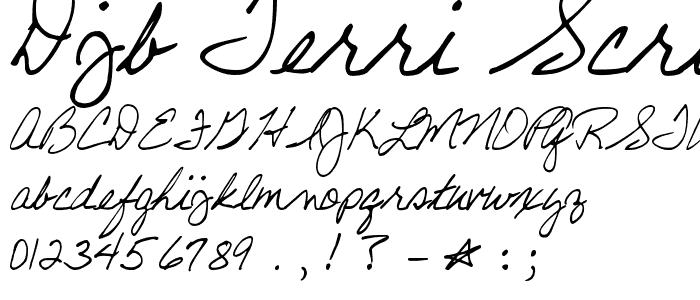 Djb Terri Scri
ABCDEFGHIJKLMNOPQRSTU
abcdefghijklmnopqrstuvwxyz
0123456789 . , ! ? - * : ;